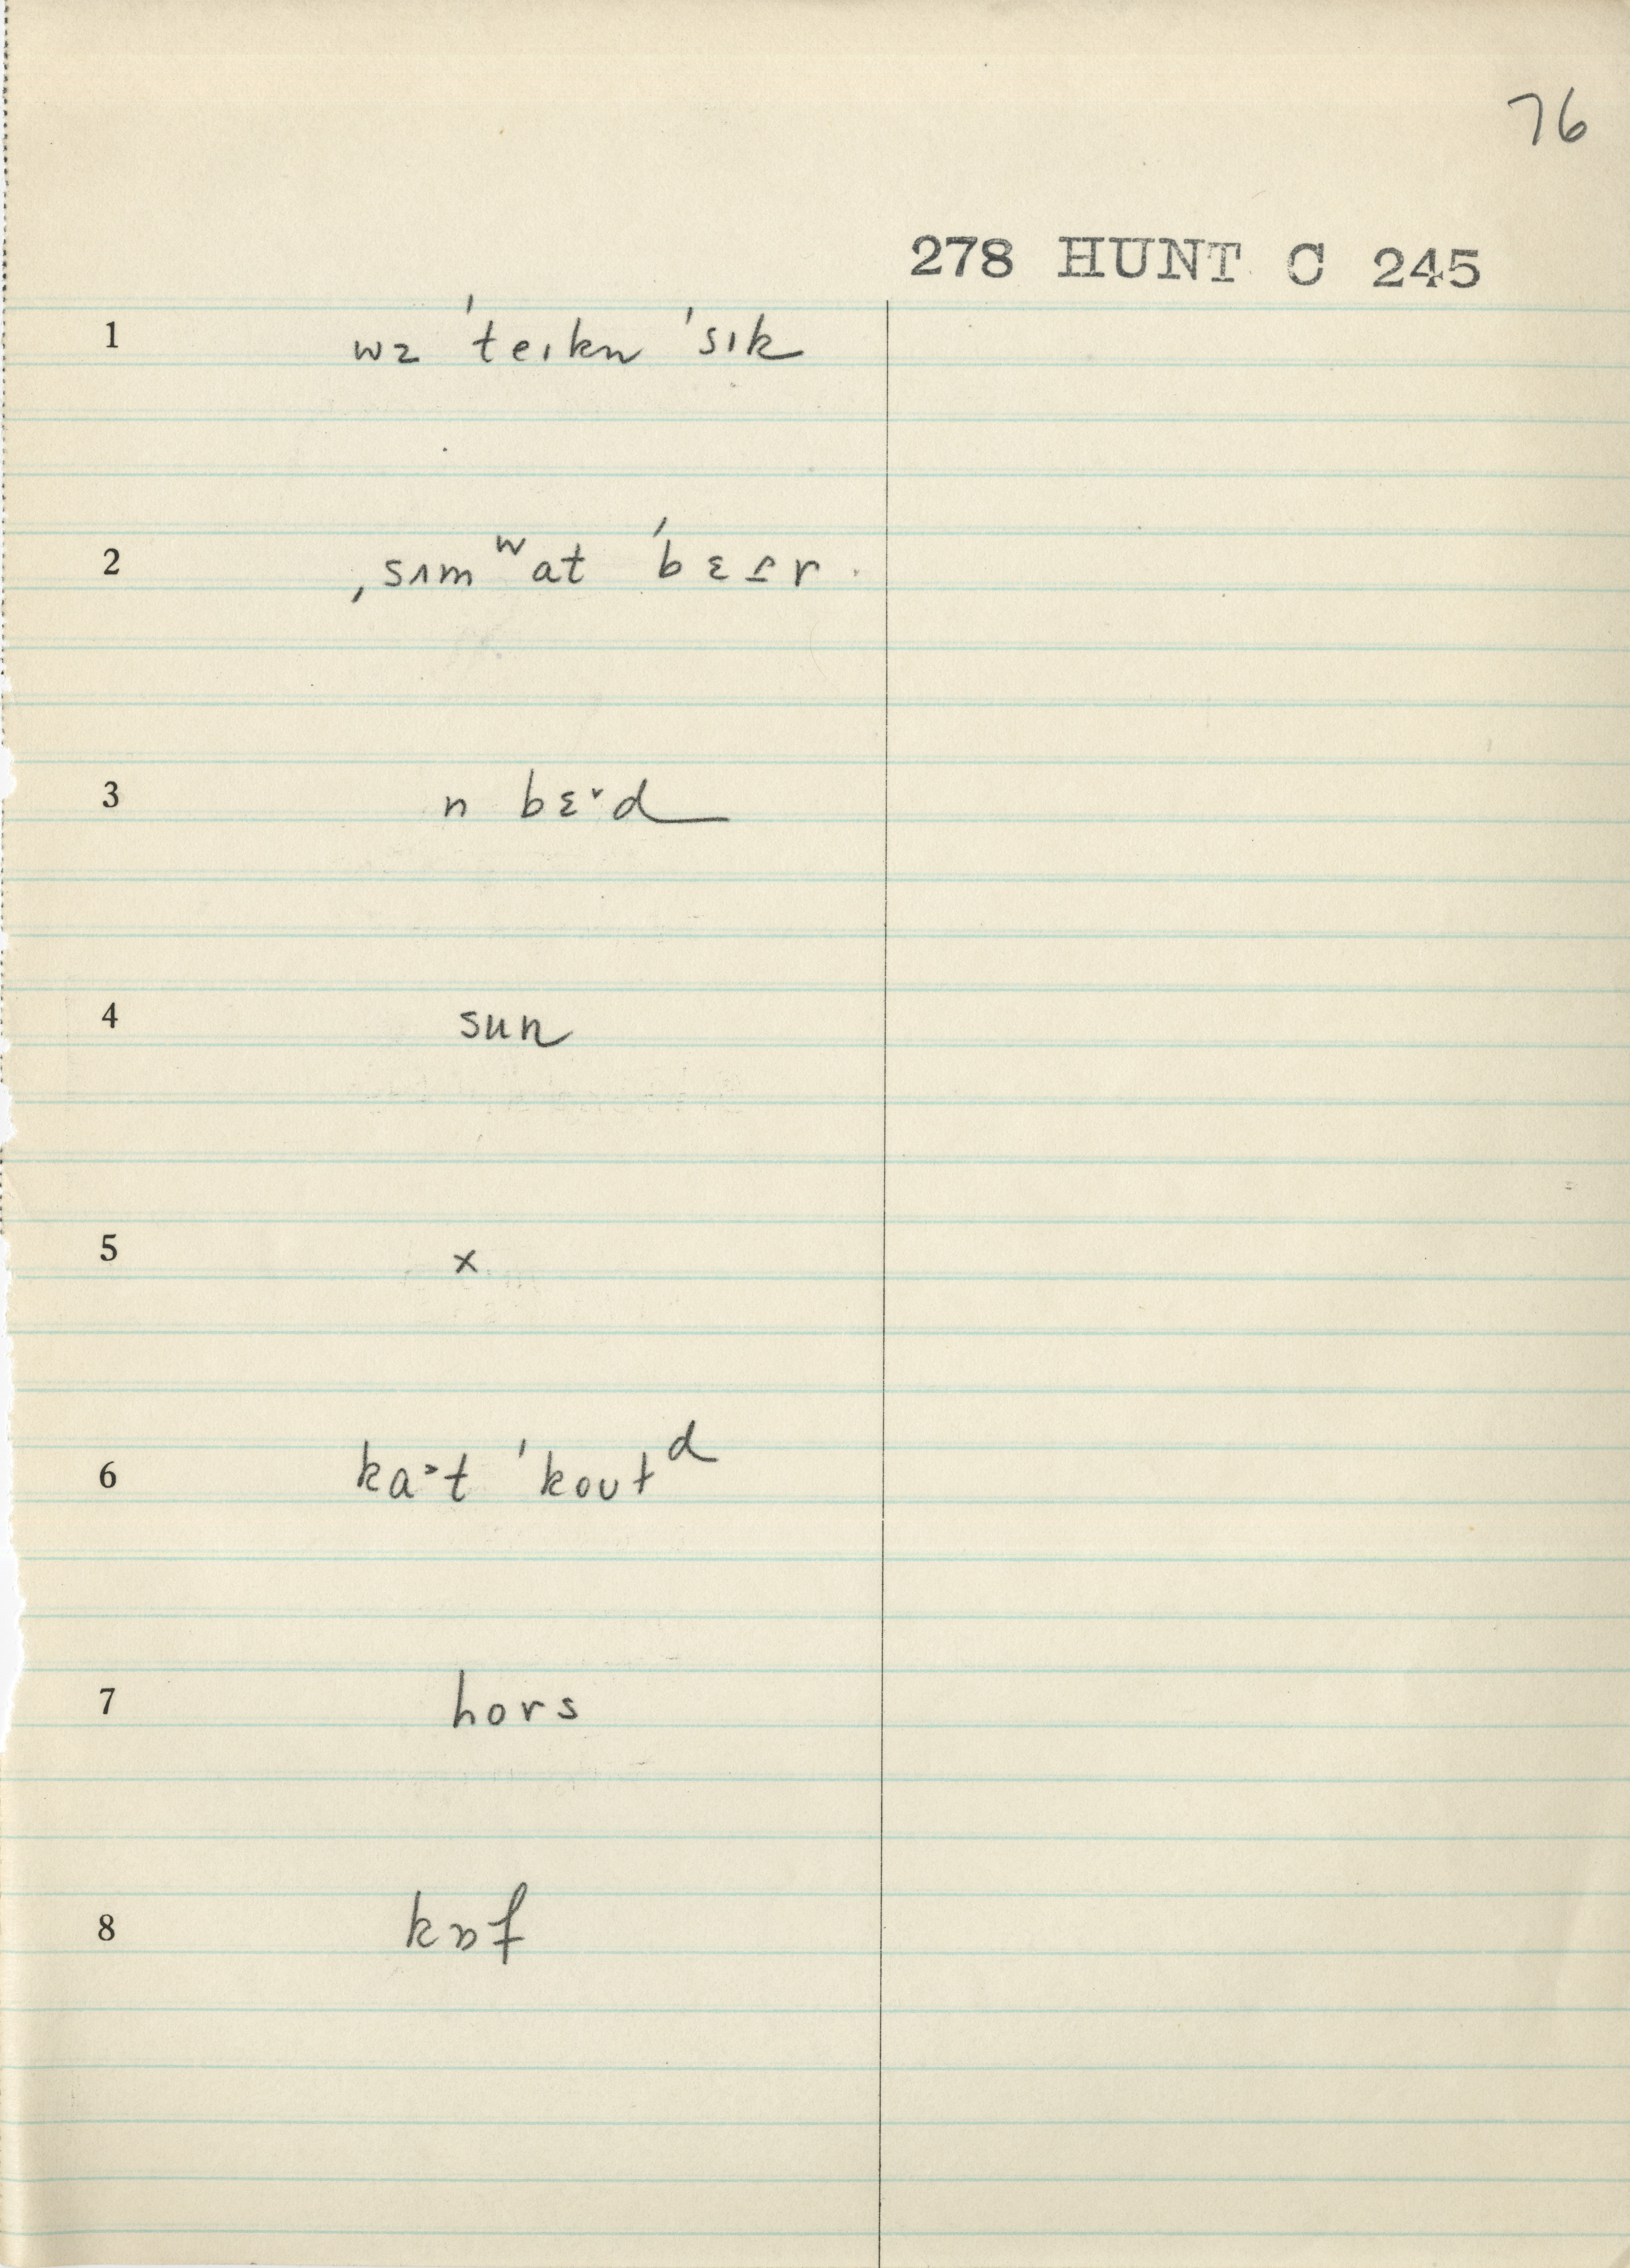 76
278 HUNT C 245
1 wɜ ˈteɪkn ˈsɪk
2 ˌsʌmʷat ˈbɛ r
3 n bɛ˞d
4 sun
5 x
6 ka˃t ˈkoʊtᵈ
7 hors
8 kɒf